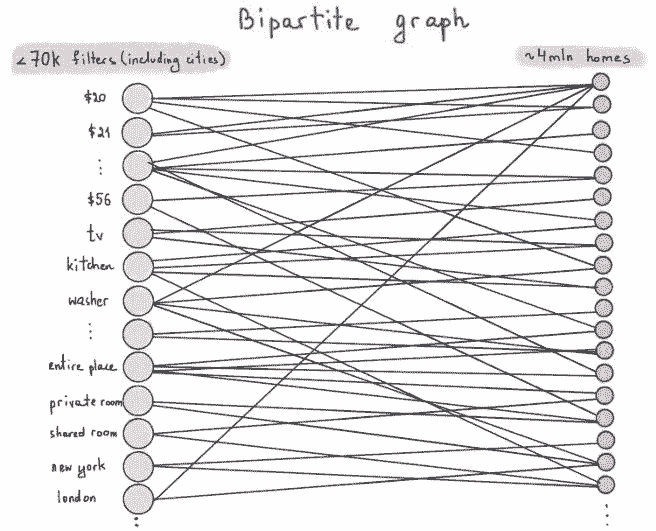 Bipartite graph
<70k filters (including cities)
~4mln homes
$20
$21
⋮
$56
tv
kitchen
washer
⋮
entire place
private room
shared room
new york
london
⋮
⋮